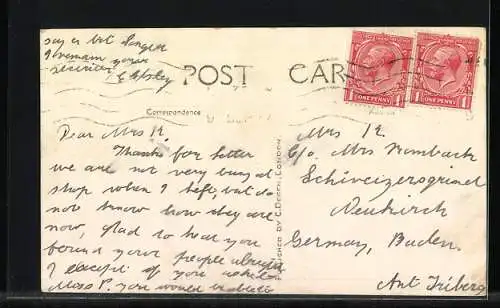 say
I remain yours
POST CARD
Correspondence
ONE PENNY
ONE PENNY
Dear Mrs K.
Thanks for letter
we are not very busy at
shop when I left, but do
not know how they are
now, glad to hear you
found your people
of you
Miss P. you would
PUBLISHED BY C. DEGEN, LONDON.
Mrs K.
C/o Mrs Rombach
Schiveizersgrund
Neukirch
Germany, Baden.
Amt Triberg